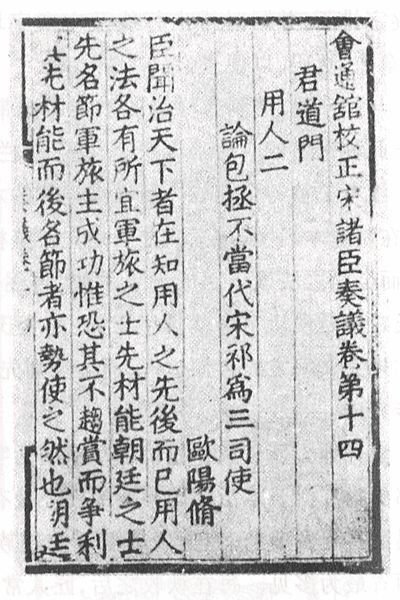 會通館校正宋諸臣奏議卷第十四
君道門
用人二
論包拯不當代宋祁爲三司使
歐陽脩
臣聞治天下者在知用人之先後而已用人
之法各有所宜軍旅之士先材能朝廷之士
先名節軍旅主成功惟恐其不趨賞而爭利
先材能而後名節者亦勢使之然也朝廷